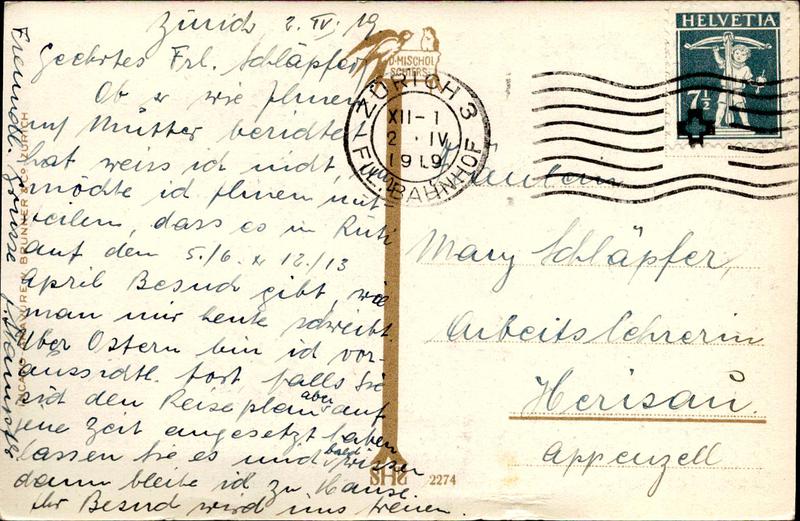 Zürich, 2. IV. 19
Geehrtes Frl. Schläpfer,
Ob er wie Ihnen
auf Mutter berichtet
hat weiss ich nicht,
möchte ich Ihnen mit
teilen, dass es in Rüti
auf den 5./6. & 12./13
April Besuch gibt, wie
man mir heute schreibt.
Über Ostern bin ich vor-
aussichtl. fort, falls Sie
sich den Reiseplan aber auf
jene Zeit angesetzt haben
lassen Sie es uns bald wissen
dann bleibe ich zu Hause.
Ihr Besuch wird uns freuen.
Freundl. Grüsse
BRUNNER & Co ZÜRICH
D. MISCHOL
SCHIERS
ZÜRICH 3
XII-1
2. IV
1919
BAHNHOF
HELVETIA
7½
Fräulein
Mary Schläpfer,
Arbeitslehrerin
Herisau.
Appenzell
SHS 2274